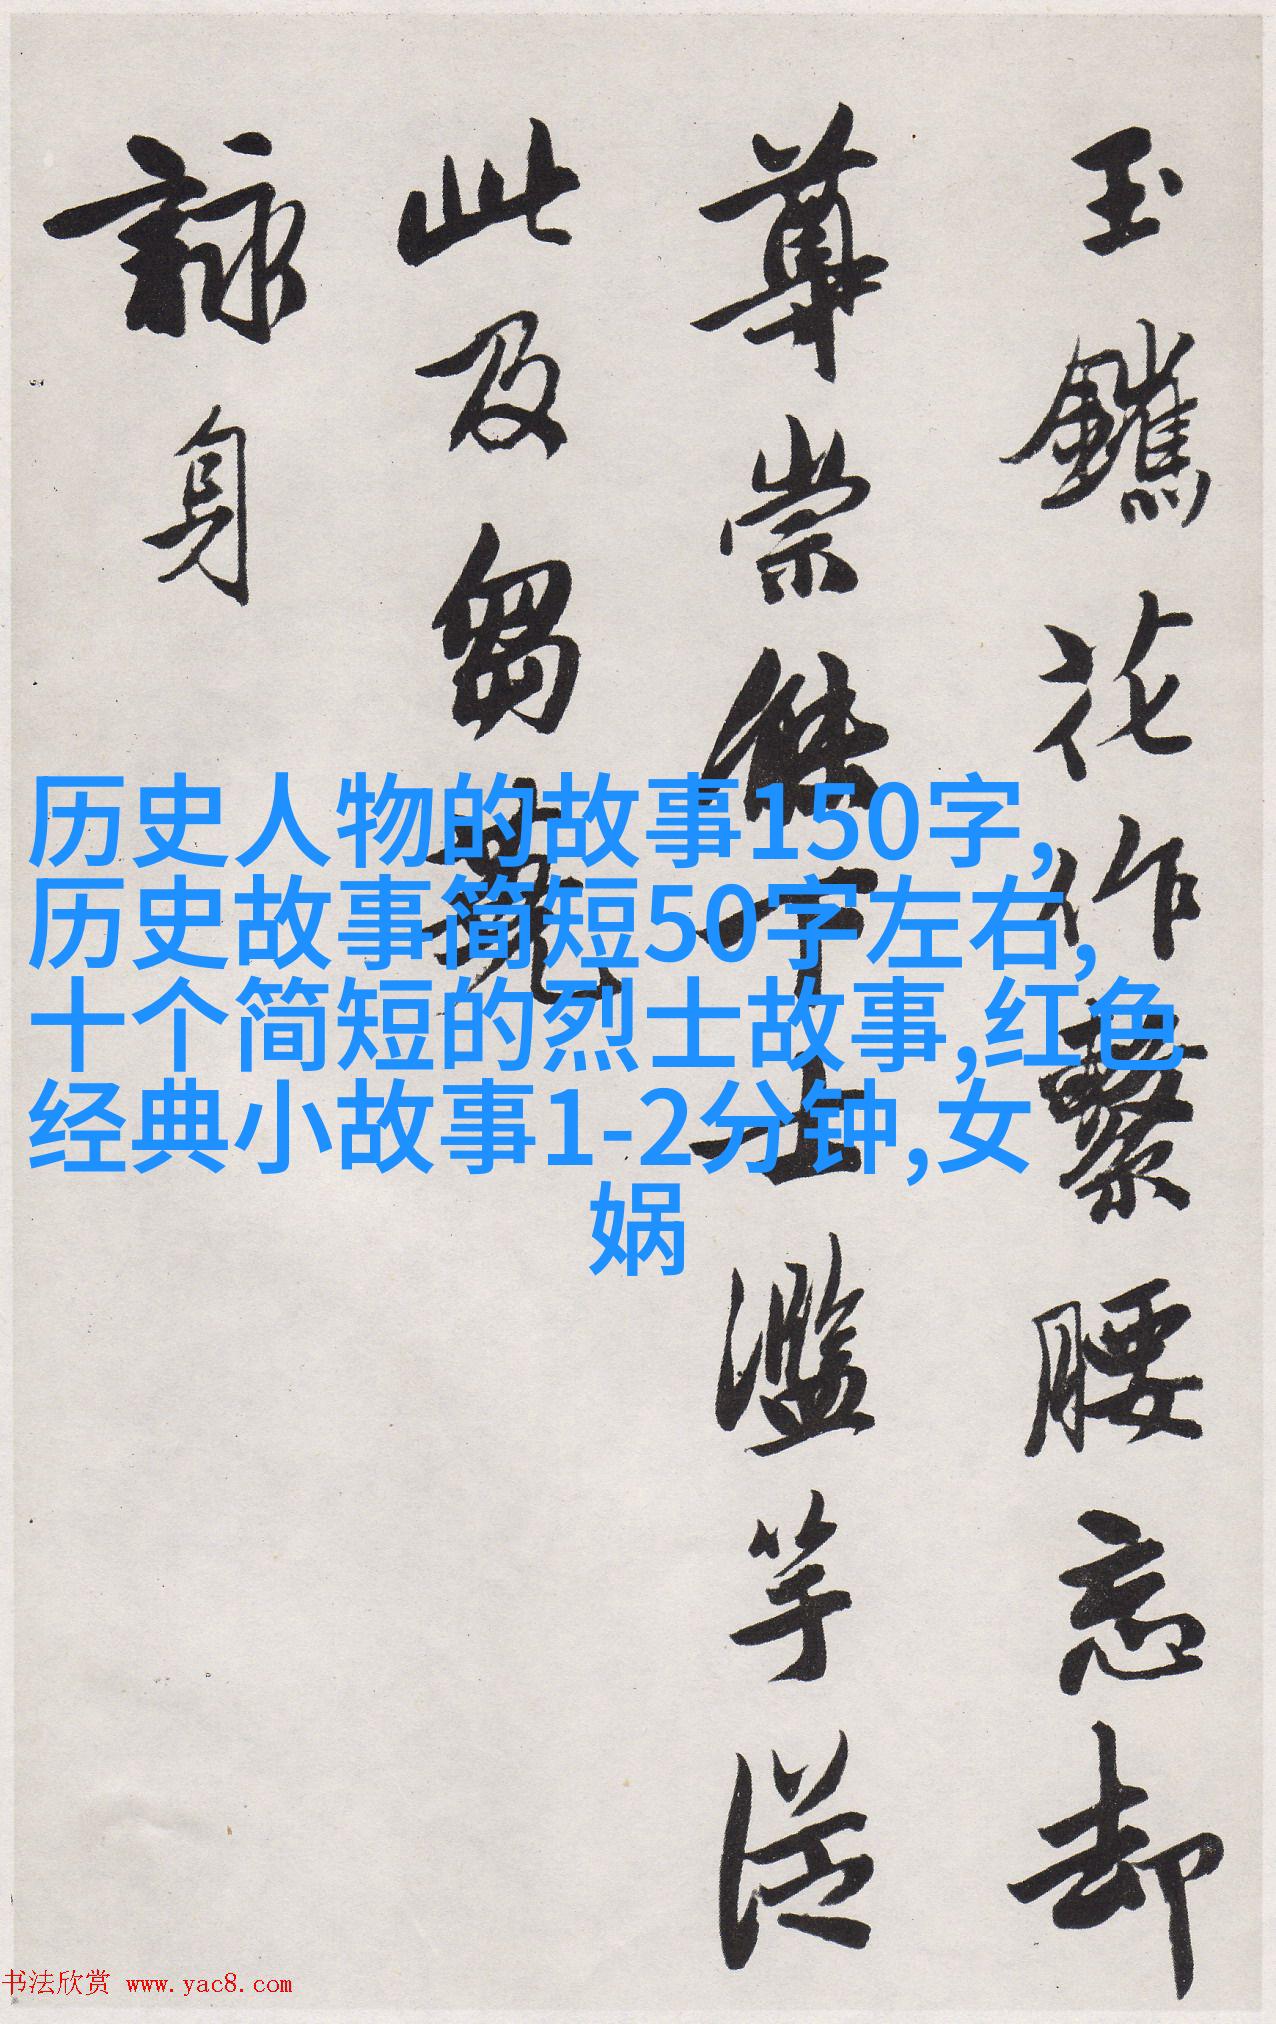 玉鑴花作繫腰忘却
尊崇傑下士濫竽從
此及芻蕘
詠身
历史人物的故事150字,
历史故事简短50字左右,
十个简短的烈士故事,红色
经典小故事1-2分钟,女
娲
书法欣赏 www.yac8.com